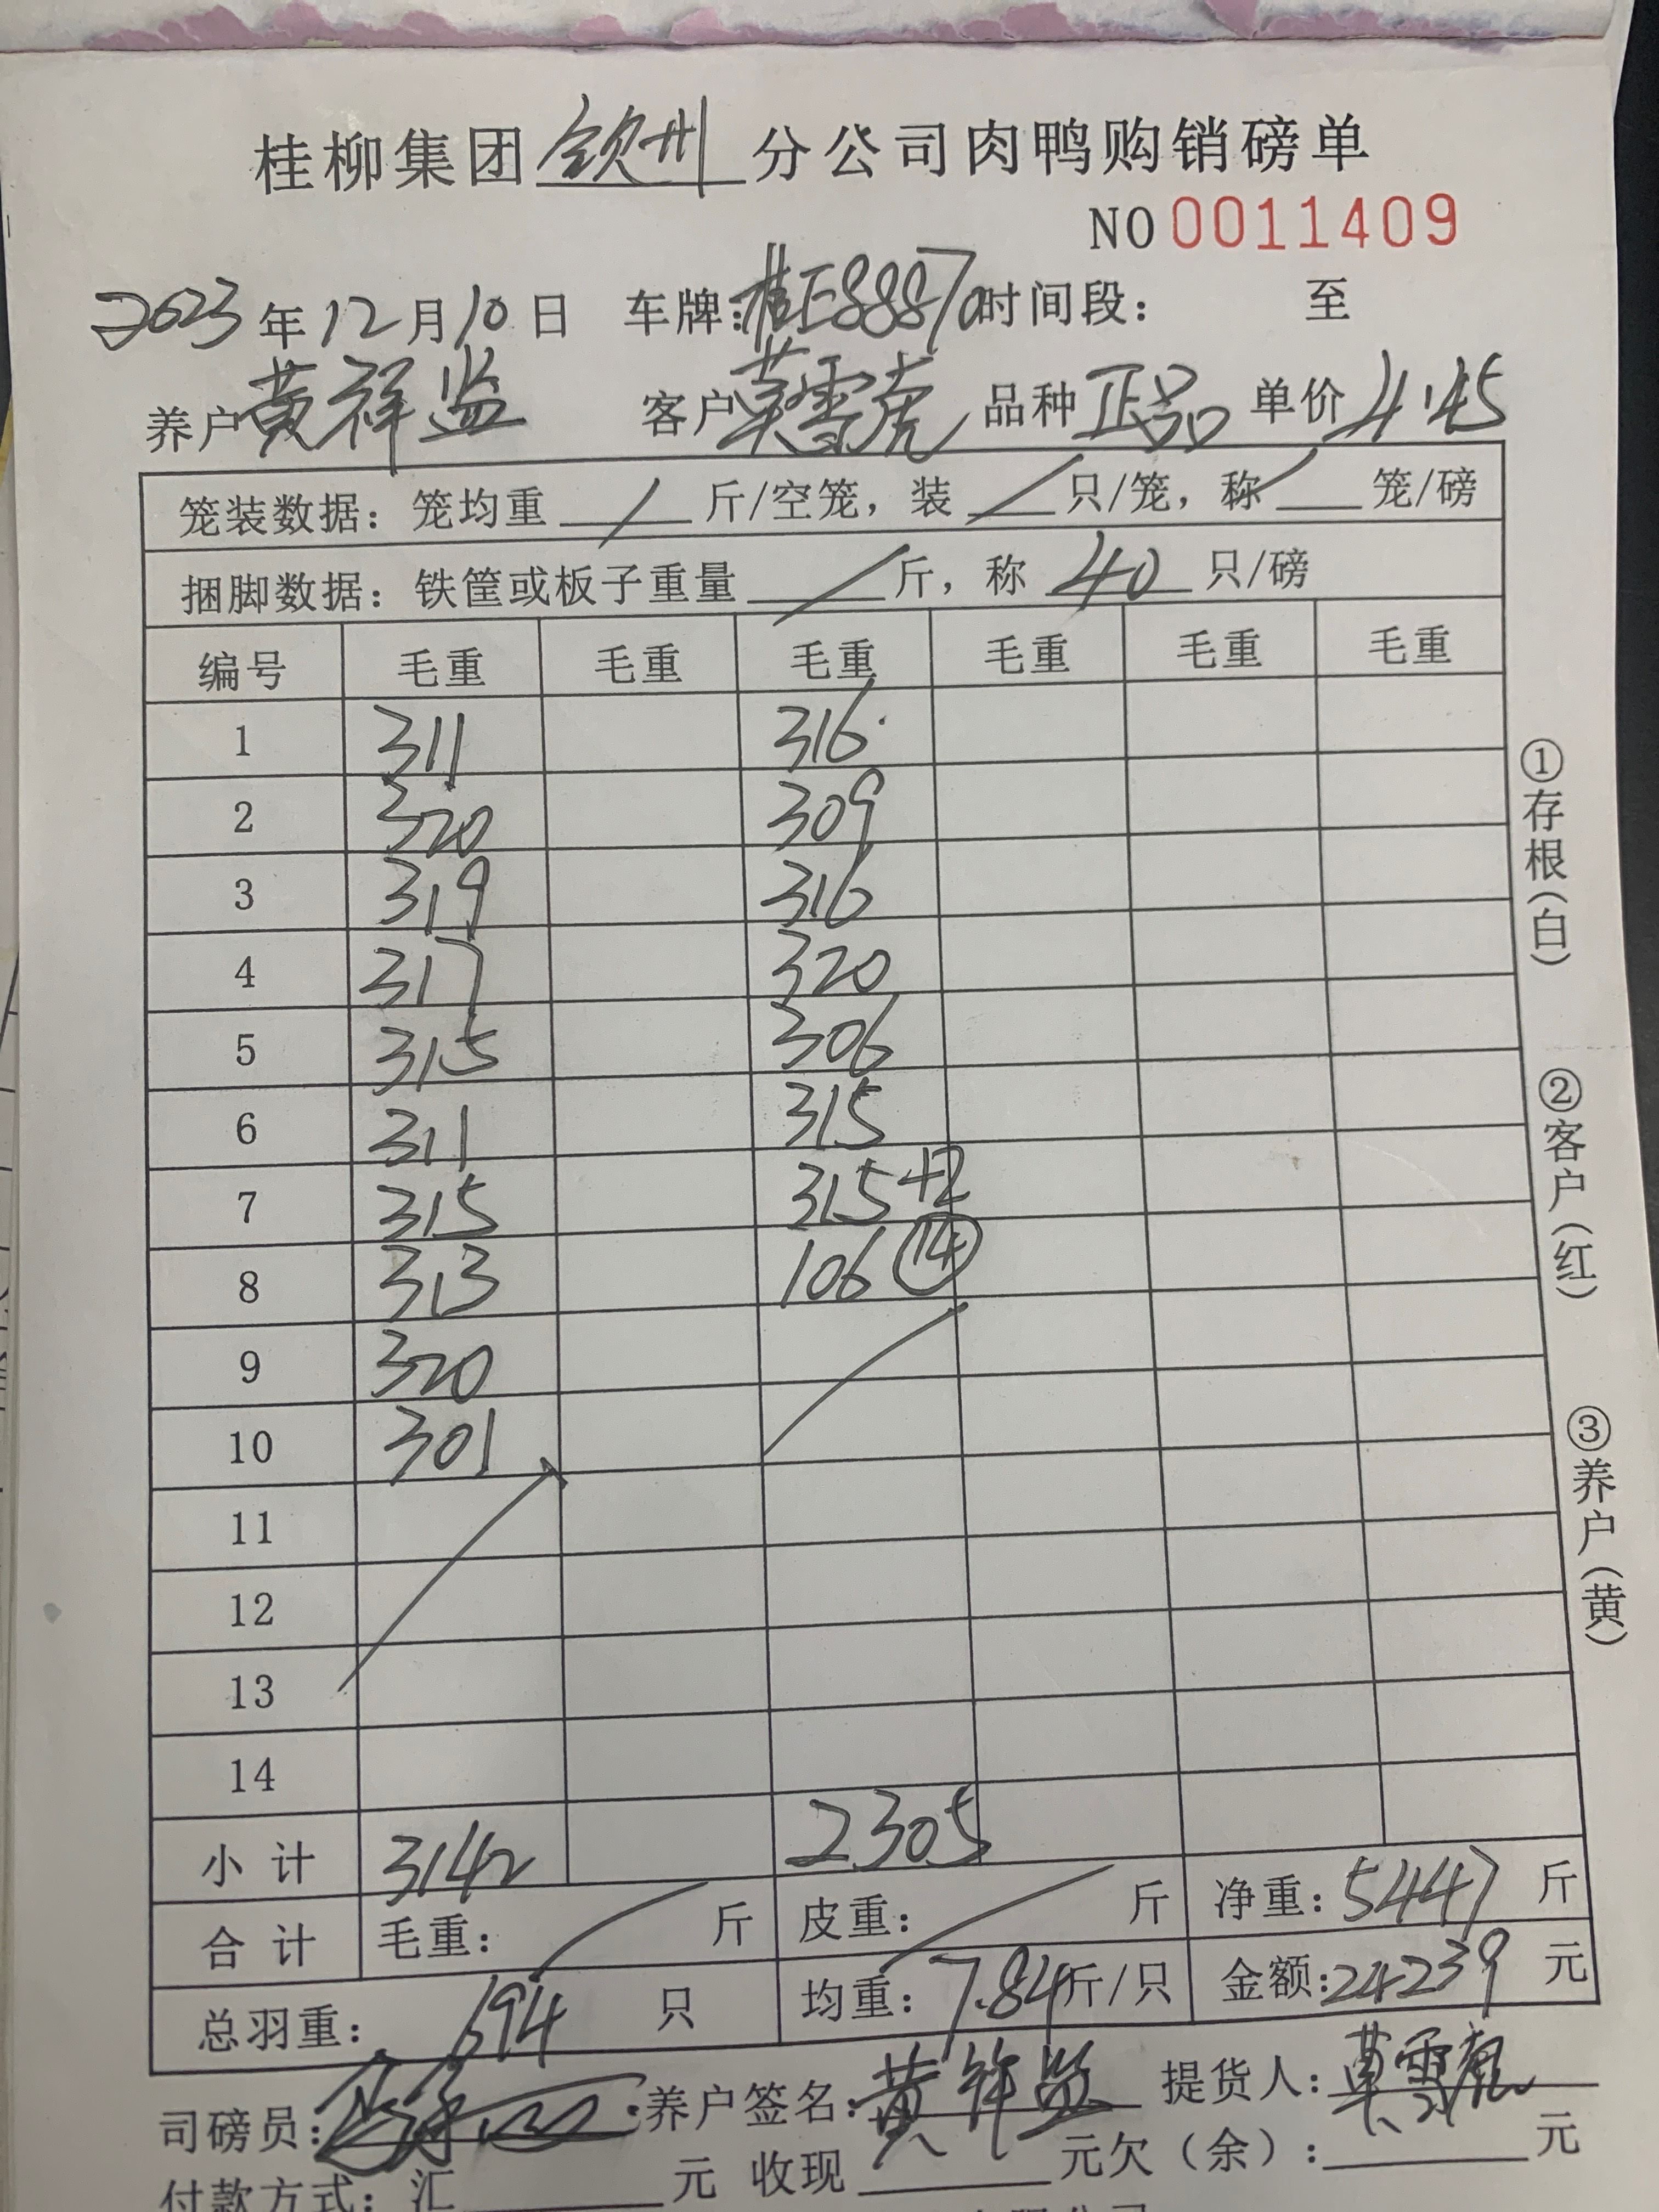 桂柳集团钦州分公司肉鸭购销磅单
NO 0011409
2023年12月10日 车牌:桂E88870时间段: 至
养户黄祥监 客户莫雪虎 品种正品 单价4.45
笼装数据:笼均重/斤/空笼,装/只/笼,称/笼/磅
捆脚数据:铁筐或板子重量/斤,称40只/磅
编号 毛重 毛重 毛重 毛重 毛重 毛重
1 311 316
2 320 309
3 319 316
4 317 320
5 315 306
6 311 315
7 315 315+2
8 313 106 ⑭
9 320
10 301
11
12
13
14
小计 3142 2305
合计 毛重: 斤 皮重: 斤 净重:5447斤
总羽重:694只 均重:7.84斤/只 金额:24239元
司磅员: 养户签名:黄祥监 提货人:莫雪虎
付款方式:汇 元 收现 元欠(余): 元
①存根(白)
②客户(红)
③养户(黄)